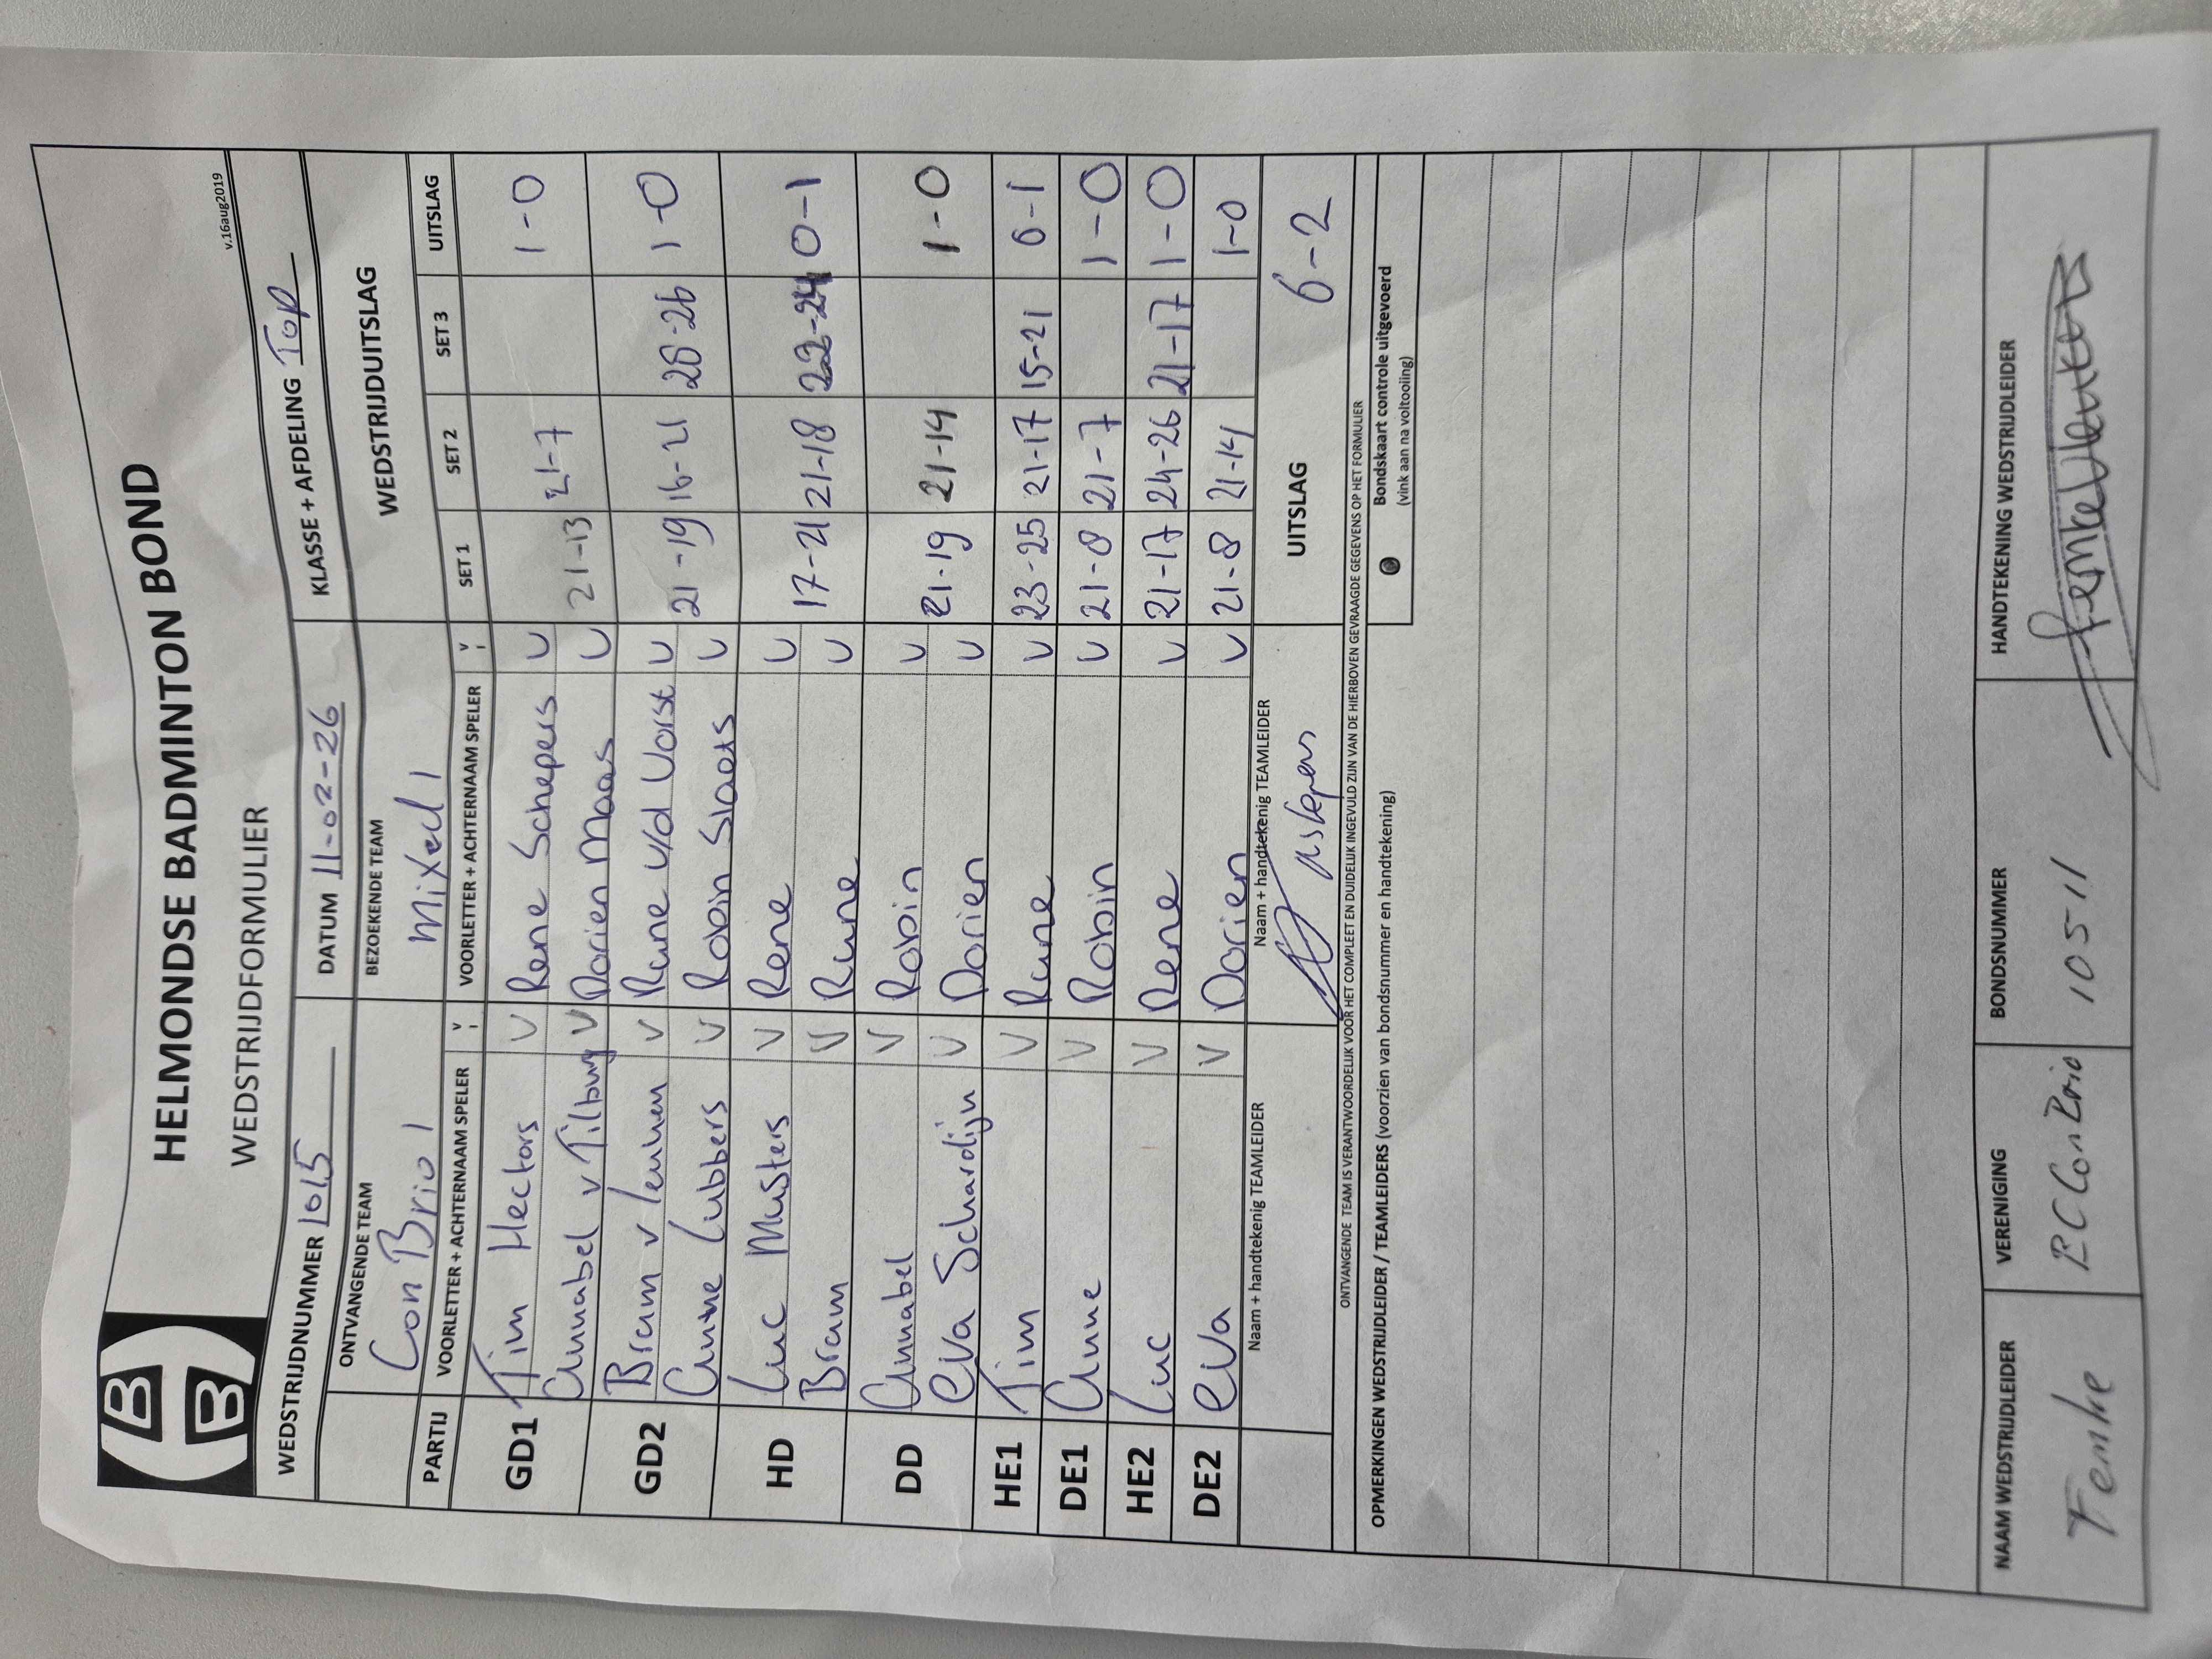 HELMONDSE BADMINTON BOND
WEDSTRIJDFORMULIER
v.16aug2019
WEDSTRIJDNUMMER 1015 DATUM 11-02-26 KLASSE + AFDELING Top
ONTVANGENDE TEAM BEZOEKENDE TEAM WEDSTRIJDUITSLAG
Con Brio 1 Mixed 1
PARTIJ VOORLETTER + ACHTERNAAM SPELER V VOORLETTER + ACHTERNAAM SPELER V SET 1 SET 2 SET 3 UITSLAG
GD1 Tim Hectors V Rene Schepers V 21-13 21-7 1-0
Annabel v Tilburg V Dorien Maas V
GD2 Bram v Lennen V Rune v/d Vorst V 21-19 16-21 28-26 1-0
Anne Lubbers V Robin Slaets V
HD Luc Musters V Rene V 17-21 21-18 22-24 0-1
Bram V Rune V
DD Annabel V Robin V 21-19 21-14 1-0
Eva Schardijn V Dorien V
HE1 Tim V Rune V 23-25 21-17 15-21 0-1
DE1 Anne V Robin V 21-8 21-7 1-0
HE2 Luc V Rene V 21-17 24-26 21-17 1-0
DE2 Eva V Dorien V 21-8 21-14 1-0
Naam + handtekenig TEAMLEIDER Naam + handtekenig TEAMLEIDER UITSLAG 6-2
ONTVANGENDE TEAM IS VERANTWOORDELIJK VOOR HET COMPLEET EN DUIDELIJK INGEVULD ZIJN VAN DE HIERBOVEN GEVRAAGDE GEGEVENS OP HET FORMULIER
OPMERKINGEN WEDSTRIJDLEIDER / TEAMLEIDERS (voorzien van bondsnummer en handtekening)
Bondskaart controle uitgevoerd
(vink aan na voltooiing)
NAAM WEDSTRIJDLEIDER VERENIGING BONDSNUMMER HANDTEKENING WEDSTRIJDLEIDER
Femke BC Con Brio 10511